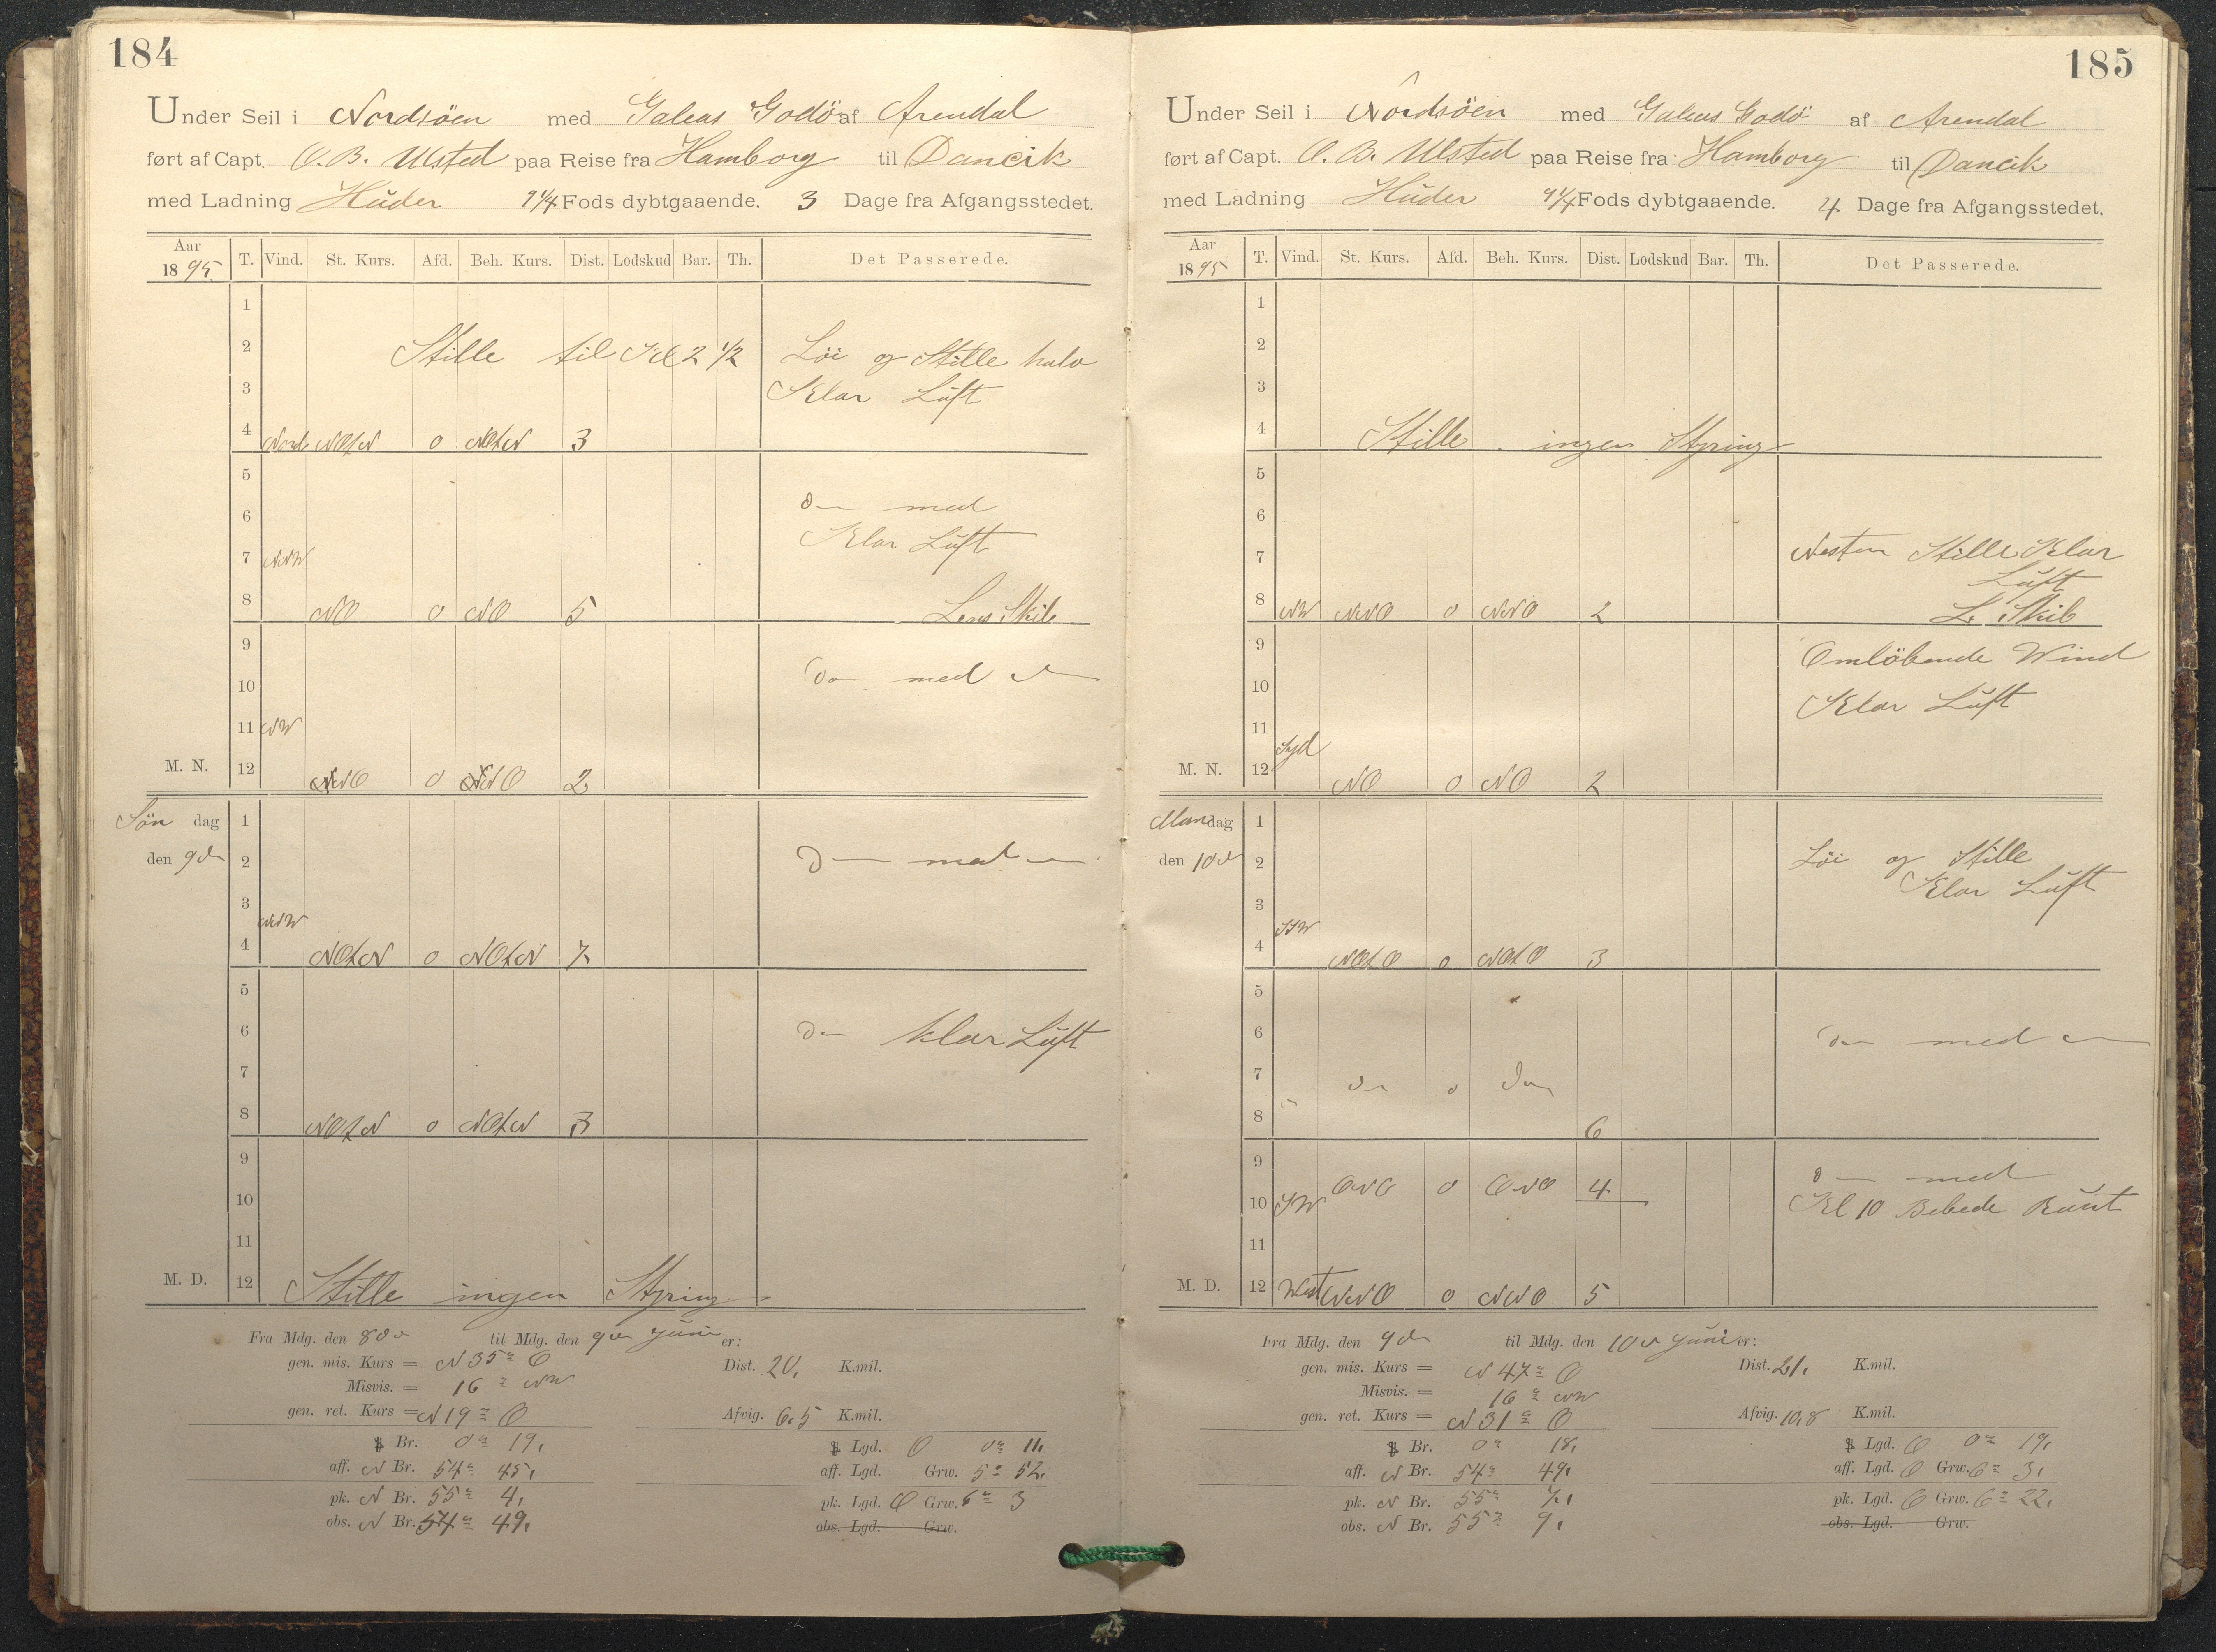 184
Under Seil i Nordsöen med Galeas Godö af Arendal
ført af Capt. O. B. Ulsted paa Reise fra Hamborg til Dancik
med Ladning Hŭder 9 1/4 Fods dybtgaaende. 3 Dage fra Afgangsstedet.
Aar 1895 T. Vind. St. Kurs. Afd. Beh. Kurs. Dist. Lodskud Bar. Th. Det Passerede.
1
2 Stille til Kl 2 1/2 Löi og Stille halv
3 Klar Lŭft
4 Nord NOtN 0 NOtN 3
5
6 Do med
7 NNW Klar Lŭft
8 NO 0 NO 5 Lens Skib
9
10 Do med do
11 NW
M. N. 12 NNO 0 NNO 2
Søn dag 1
den 9de 2 Do med do
3 NNW
4 NOtN 0 NOtN 7
5
6 Do klar Lŭft
7
8 NOtN 0 NOtN 3
9
10
11
M. D. 12 Stille ingen Styring
Fra Mdg. den 8de til Mdg. den 9de Jŭni er:
gen. mis. Kurs = N 35° O Dist. 20, K.mil.
Misvis. = 16° NW
gen. ret. Kurs = N 19° O Afvig. 6,5 K.mil.
Br. 0° 19, Lgd. O 0° 11,
aff. N Br. 54° 45, aff. Lgd. Grw. 5° 52,
pk. N Br. 55° 4, pk. Lgd. O Grw. 6° 3
obs. N Br. 54° 49, obs. Lgd. Grw.
185
Under Seil i Nordsöen med Galeas Godö af Arendal
ført af Capt. O. B. Ulsted paa Reise fra Hamborg til Dancik
med Ladning Hŭder 9 1/4 Fods dybtgaaende. 4 Dage fra Afgangsstedet.
Aar 1895 T. Vind. St. Kurs. Afd. Beh. Kurs. Dist. Lodskud Bar. Th. Det Passerede.
1
2
3
4 Stille ingen Styring
5
6
7 Nesten Stille Klar
Lŭft
8 NW NNO 0 NNO 2 L. Skib
9 Omlöbende Wind
10 Klar Lŭft
11
Syd
M. N. 12 NO 0 NO 2
Mandag 1
den 10de 2 Löi og Stille
Klar Lŭft
3
SSW
4 NOtO 0 NOtO 3
5
6 Do med do
7 do 0 do
8 6
9 ONO 0 ONO 4 Do med
10 SW Kl 10 Bebede Rŭnt
11
M. D. 12 West NNO 0 NNO 5
Fra Mdg. den 9de til Mdg. den 10de Jŭni er:
gen. mis. Kurs = N 47° O Dist. 21, K.mil.
Misvis. = 16° NW
gen. ret. Kurs = N 31° O Afvig. 10,8 K.mil.
Br. 0° 18, Lgd. O 0° 19,
aff. N Br. 54° 49, aff. Lgd. O Grw. 6° 3,
pk. N Br. 55° 7, pk. Lgd. O Grw. 6° 22,
obs. N Br. 55° 9, obs. Lgd. Grw.